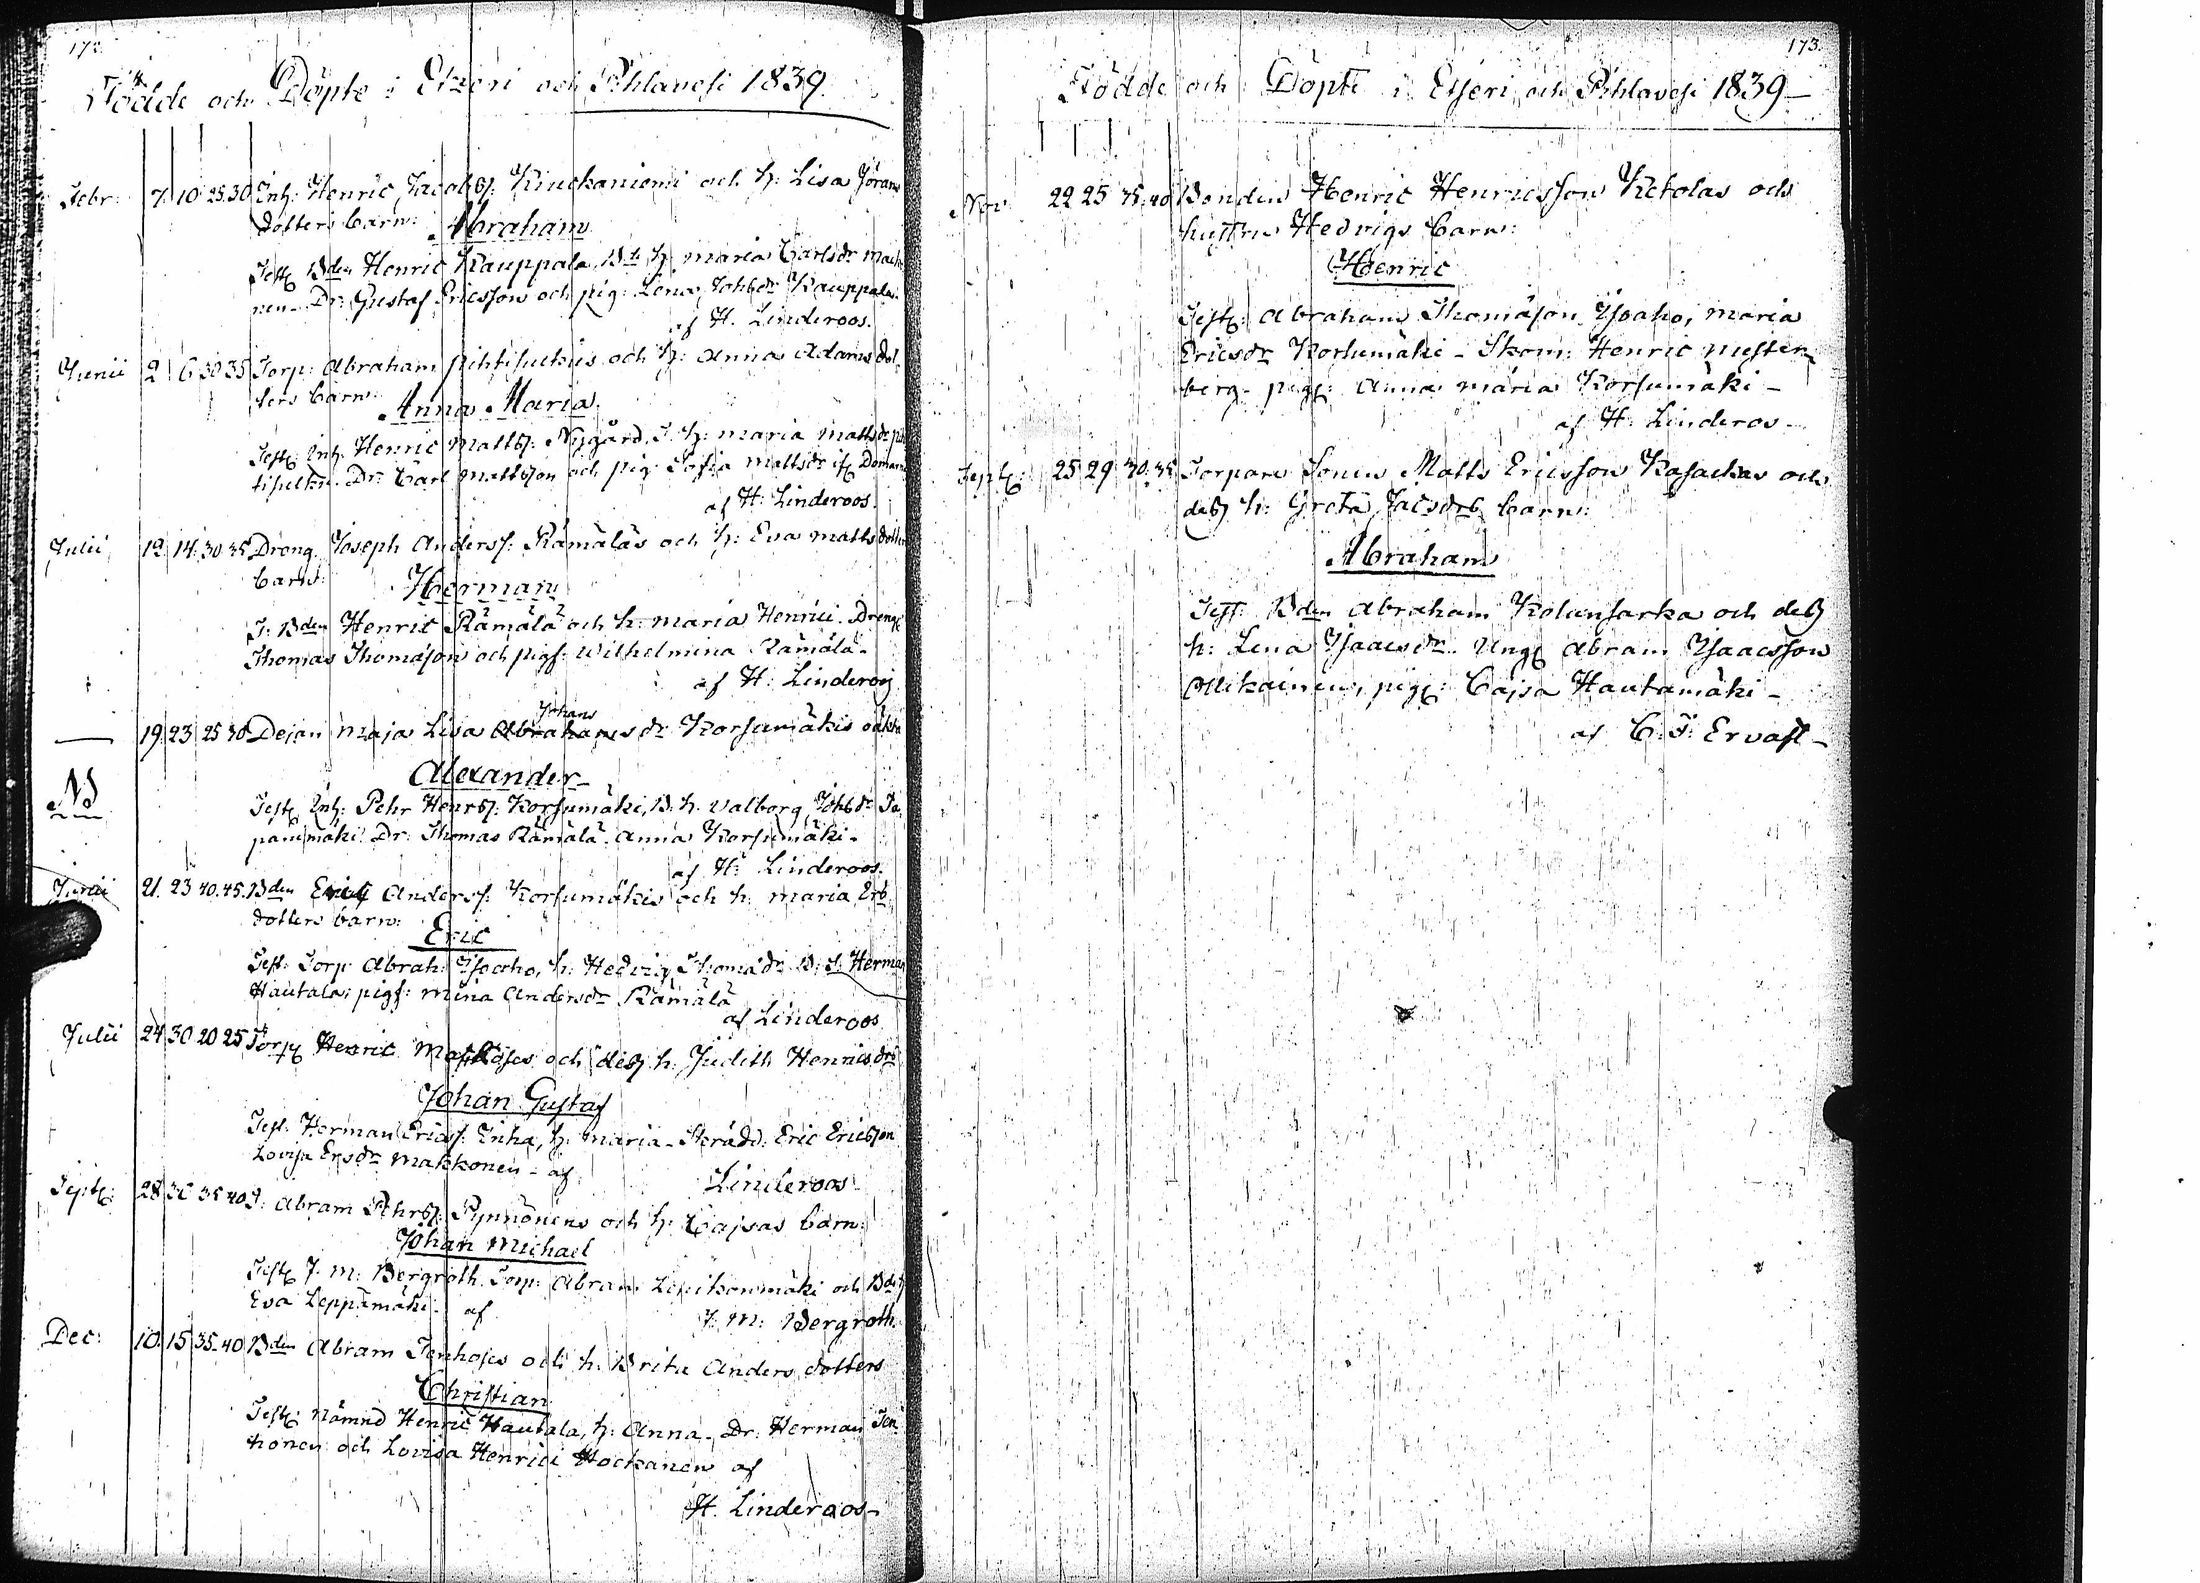 172.
Födde och Döpte i Etzeri och Pihlavesi 1839.
Febr: 7. 10 25.30 Inh: Henric Jacobss: Kiuckaniemi och h: Lisa Jörans
dotters barn: Abraham
Test: Bden Henric Kauppala, Bd h: Maria Carlsdr
nen. Dr: Gustaf Ericsson och pig: Lena Johsdr Kauppala.
af H. Linderoos.
Junii 2 6 30 35 Torp: Abraham pihtisulkus och h: Anna Adams dot
ters barn: Anna Maria.
Test: Inh: Henric Mattss: Nygård. T. h: Maria Mattsdr pih
tisulku. Dr: Carl Mattsson och pig: Sofia Mattsdr
af H: Linderoos.
Julii 12 14. 30 35 Dreng. Joseph Anderss: Rämäläs och h: Eva Matts dotters
barn: Herman
T: Bden Henric Rämälä och h: Maria Henrici. Dreng:
Thomas Thomasson och pigs: Wilhelmina Rämälä.
af H: Linderoos
— 19 23 25 30 Dejan Maja Lisa Abrahams Johans dr Korsumäkis oäkta
NB
Alexander
Test: Inh: Pehr Henrss: Korsumäki, B. h. Valborg Johsdr Ta
panimäki. Dr: Thomas Rämälä. Anna Korsumäki.
af H: Linderoos.
Junii 21. 23 40.45. Bden Eric Anderss: Korsumäkis och h: Maria Ers
dotters barn: Eric
Test: Torp: Abrah: Isoaho, h: Hedvig Thomädr B: S: Herman
Hautala; pigs: Mina Andersdr Rämälä
af Linderoos
Julii 24 30 20 25 Torp: Henric och dess h: Judith Henricsdrs
Johan Gustaf
Test: Herman Ericss: Inha, h: Maria. Skrädd: Eric Ericsson
Lovisa Ersdr Makkonen - af
Linderoos
Sept: 28 30 35 40 T: Abram Pehrss: Pynnönens och h: Cajsas barn:
Johan Michael
Test: J. M: Bergroth. Torp: Abram Lepikonmäki och Bd h
Eva Leppämäki - af
J. M: Bergroth.
Dec: 10. 15 35-40 Bden Abram Tenhoses och h: Brita Anders dotters
Christian
Test: Nämnd Henric Hautala, h: Anna. Dr: Herman Ten
honen och Lovisa Henrici Hockanen af
H. Linderoos-
173.
Födde och Döpte i Etseri och Pihlavesi 1839-
Nov: 22 25 35.40 Bonden Henric Henricsson Ketolas och
hustru Hedvigs barn:
Henric
Test: Abraham Thomäson Isoaho, Maria
Ericsdr Korsumäki - Skom: Henric
berg. pigs: Anna Maria Korsumäki -
af H: Linderos -
Sept: 25 29 30.35 Torpare Sonen Matts Ericsson Kasackas och
dess h: Greta Jacsdrs barn:
Abraham
Test: Bden Abraham Kolunsarka och dess
h: Lena Isaacsdr. Ung: Abram Isaacsson
Ollikainen, pigs: Cajsa Hautamäki -
af C. F: Ervast -